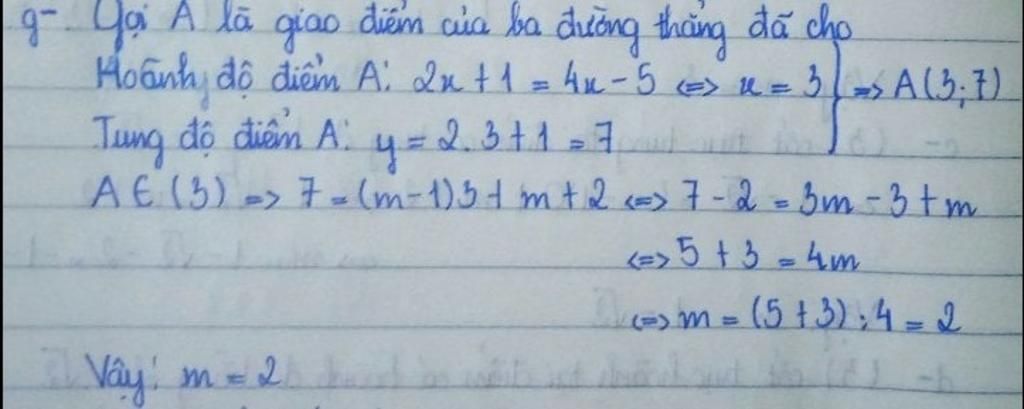 g- Gọi A là giao điểm của ba đường thẳng đã cho
Hoành độ điểm A: 2x + 1 = 4x - 5 <=> x = 3 } => A(3;7)
Tung độ điểm A: y = 2.3 + 1 = 7
A ∈ (3) => 7 = (m-1)3 + m + 2 <=> 7 - 2 = 3m - 3 + m
<=> 5 + 3 = 4m
<=> m = (5 + 3) : 4 = 2
Vậy: m = 2